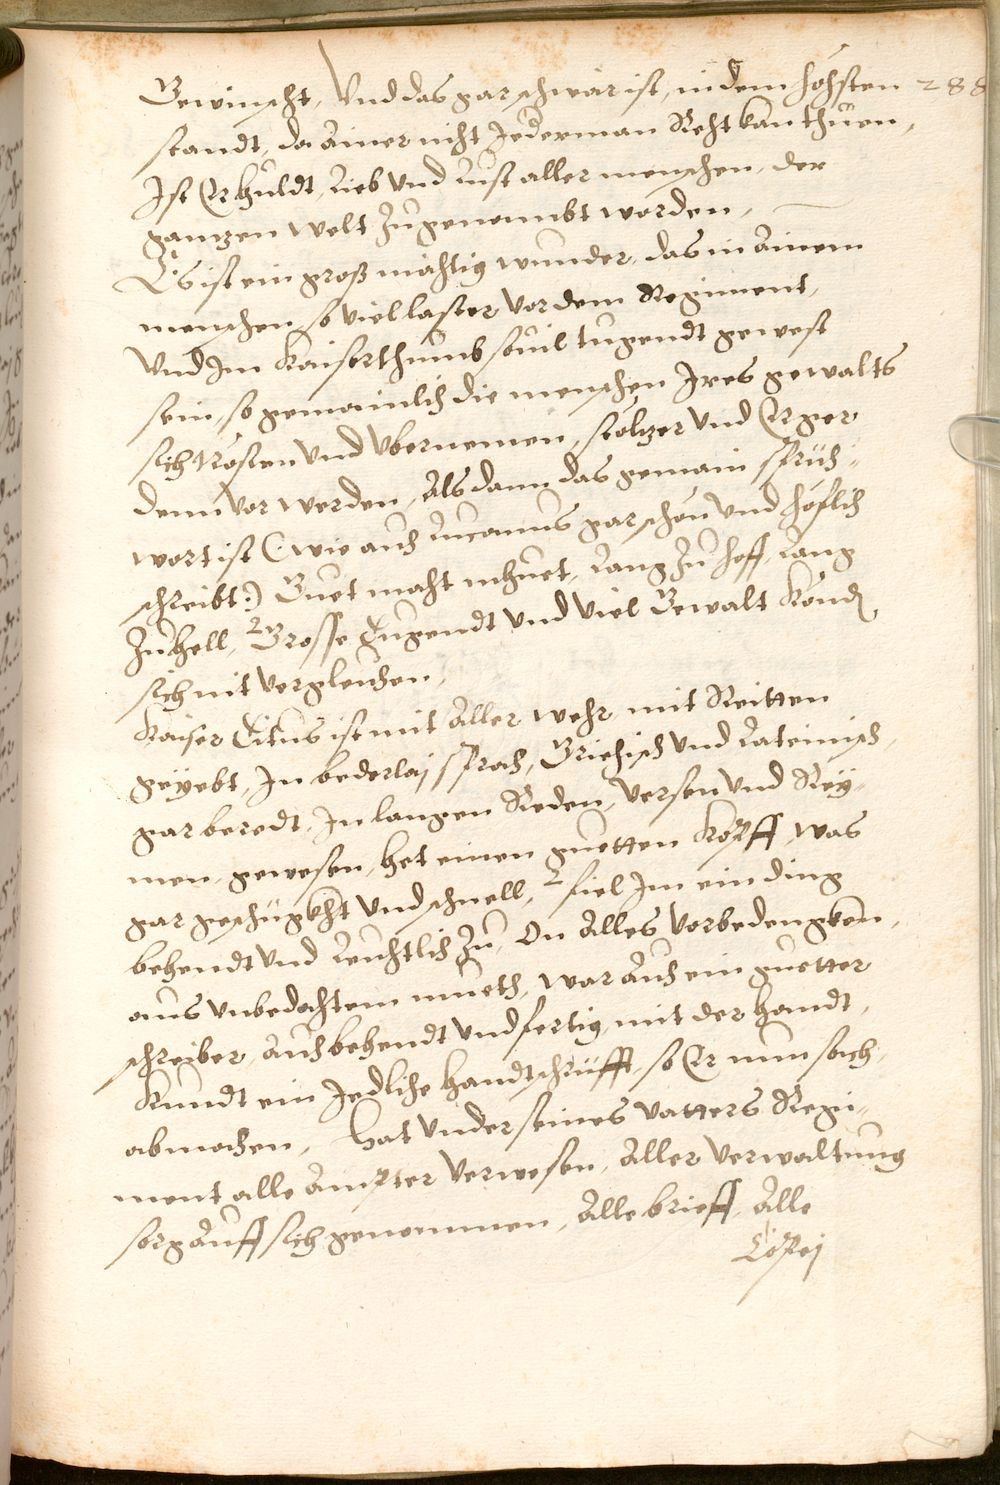 Gewinscht, Und das gar schwär ist, in dem höhsten 288
standt, da Ainer nicht Jederman Reht kan thuen,
Ist Er huldt, Lieb Und lust aller menschen, der
gantzen Welt Zugenombt worden,
Es ist ein groß mächtig wunder, das in Ainem
menschen so viel laster Vor dem Regiment,
Und Im Kaiserthumb souil tugendt gewest
sein, so gemainlich die menschen Ires gewalts
sich trösten Und Ubernemen, stoltzer Und Erger
denn Vor werden, Als dann das gemain spruch-
wort ist (: wie auch Lucanus gar schön Und höflich
schreibt:) Guet macht muet, Lang Zu hoff, Lang
Zu hell, Grosse Tugendt Und Viel Gewalt könd
sich nit Vergleichen,
Kaiser Titus ist mit Aller wehr, mit Reitten
geyebt, In bederlaj sprach, Griechisch Und Lateinisch,
gar beredt, In langen Reden, Versen Und Rey-
men, gewesen, het einen guetten Kopff, was
gar geschügkht Und schnell, fiel Im ein ding
behendt Und Leuchtlich Zu, On Alles Vorbedengken,
aus Unbedachtem mueth, war Auch ein guetter
schreiber, Auch behendt Und fertig mit der handt,
Kundt ein Jedliche handtschrüfft, so Er nun sach,
abmachen, hat Under seines Vatters Regi-
ment alle Ampter Verwesen, Aller Verwaltung
sorg Auff sich genommen, Alle brieff, Alle
Copej